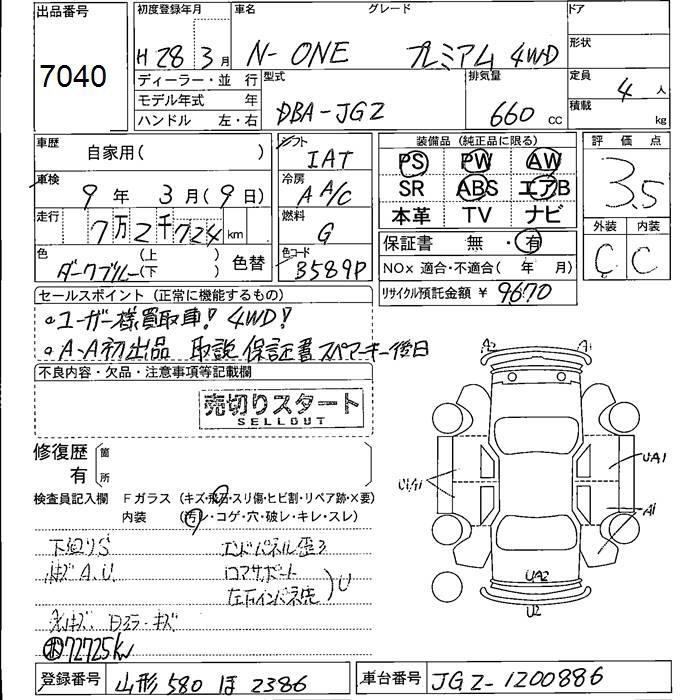 出品番号
7040
初度登録年月
H 28 年 3 月
車名
N-ONE
グレード
プレミアム 4WD
ドア
形状
ディーラー・並 行
モデル年式 年
ハンドル 左・右
型式
DBA-JG2
排気量
660 cc
定員
4 人
積載
kg
車歴
自家用( )
車検
9 年 3 月(9 日)
走行
7 万 2 千 724 km
色
ダークブルー
(上 )
(下 )
色替
シフト
IAT
冷房
A A/C
燃料
G
色コード
B589P
装備品(純正品に限る)
PS PW AW
SR ABS エアB
本革 TV ナビ
保証書 無・有
NOx 適合・不適合( 年 月)
リサイクル預託金額 ¥ 9670
評価点
3.5
外装 内装
C C
セールスポイント(正常に機能するもの)
。ユーザー様買取車! 4WD!
。A・A初出品 取説 保証書 スペアーキー後日
不良内容・欠品・注意事項等記載欄
売切りスタート
SELLOUT
修復歴
有
箇
所
検査員記入欄 Fガラス (キズ・飛石・スリ傷・ヒビ割・リペア跡・X要)
内装 (汚レ・コゲ・穴・破レ・キレ・スレ)
下廻りS
エンドパネル歪3
キズ A.U.
コアサポート
左右インパネ先
U
72725km
A2
A1
UA1
UA1
A1
UA2
U2
登録番号
山形 580 ほ 2386
車台番号
JG2-1200886